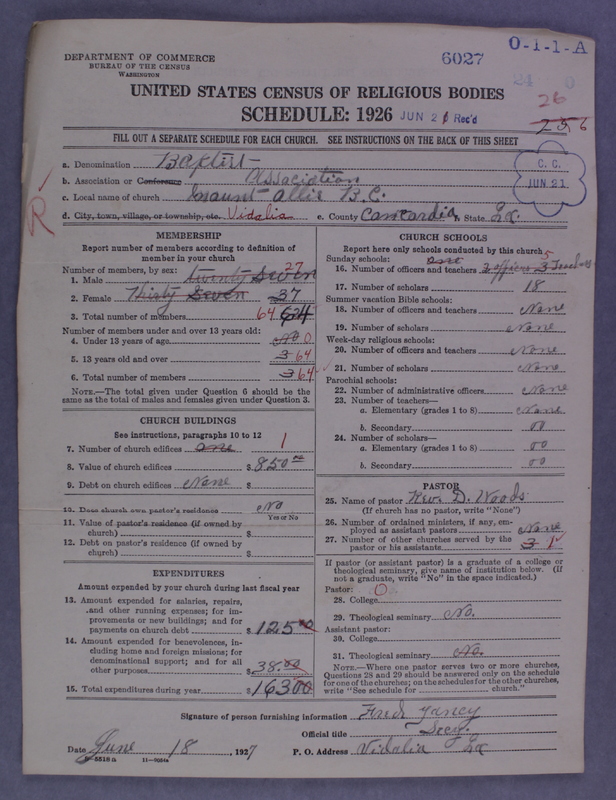 DEPARTMENT OF COMMERCE
BUREAU OF THE CENSUS
WASHINGTON
6027
O-1-1-A
UNITED STATES CENSUS OF RELIGIOUS BODIES
SCHEDULE: 1926
JUN 21 Rec'd
26
256
FILL OUT A SEPARATE SCHEDULE FOR EACH CHURCH. SEE INSTRUCTIONS ON THE BACK OF THIS SHEET
C. C.
JUN 21
R
a. Denomination Baptist
b. Association or Conference Association
c. Local name of church Mount Allie B.C.
d. City, town, village, or township, etc. Vidalia e. County Concordia f. State La.
MEMBERSHIP
Report number of members according to definition of
member in your church
Number of members, by sex:
1. Male twenty Seven 27
2. Female Thirty Seven 37
3. Total number of members 64 64
Number of members under and over 13 years old:
4. Under 13 years of age No 0
5. 13 years old and over 3 64
6. Total number of members 3 64
NOTE.—The total given under Question 6 should be the
same as the total of males and females given under Question 3.
CHURCH BUILDINGS
See instructions, paragraphs 10 to 12
7. Number of church edifices one 1
8. Value of church edifices $ 850 00
9. Debt on church edifices None $
10. Does church own pastor's residence No
Yes or No
11. Value of pastor's residence (if owned by
church) $
12. Debt on pastor's residence (if owned by
church) $
EXPENDITURES
Amount expended by your church during last fiscal year
13. Amount expended for salaries, repairs,
and other running expenses; for im-
provements or new buildings; and for
payments on church debt $ 125 00
14. Amount expended for benevolences, in-
cluding home and foreign missions; for
denominational support; and for all
other purposes $ 38.00
15. Total expenditures during year $ 163 00
CHURCH SCHOOLS
Report here only schools conducted by this church
Sunday schools: one 5
16. Number of officers and teachers 2 officers 3 Teachers
17. Number of scholars 18
Summer vacation Bible schools:
18. Number of officers and teachers None
19. Number of scholars None
Week-day religious schools:
20. Number of officers and teachers None
21. Number of scholars None
Parochial schools:
22. Number of administrative officers None
23. Number of teachers—
a. Elementary (grades 1 to 8) None
b. Secondary 00
24. Number of scholars—
a. Elementary (grades 1 to 8) 00
b. Secondary 00
PASTOR
25. Name of pastor Rev. D. Woods
(If church has no pastor, write "None")
26. Number of ordained ministers, if any, em-
ployed as assistant pastors None
27. Number of other churches served by the
pastor or his assistants 3 1
If pastor (or assistant pastor) is a graduate of a college or
theological seminary, give name of institution below. (If
not a graduate, write "No" in the space indicated.)
Pastor: O
28. College
29. Theological seminary No.
Assistant pastor:
30. College
31. Theological seminary No.
NOTE.—Where one pastor serves two or more churches,
Questions 28 and 29 should be answered only on the schedule
for one of the churches; on the schedules for the other churches,
write "See schedule for church."
Signature of person furnishing information Fred Yancy
Official title Secy.
Date June 18, 1927 P. O. Address Vidalia La